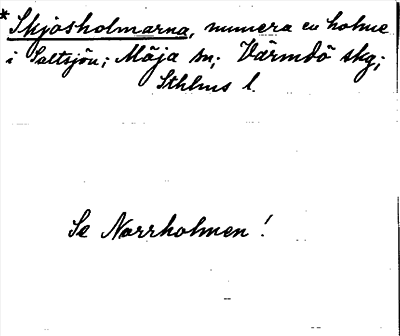 * Skjósholmarna, numera en holme
i Saltsjön; Möja sn; Värmdö skg;
Sthlms l.
Se Norrholmen!